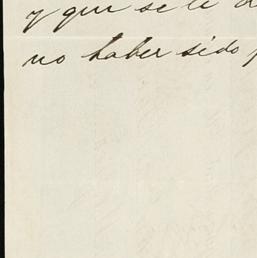 y que se le
no haber sido